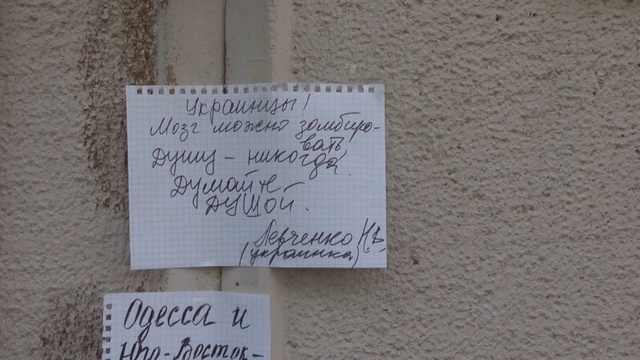 Украинцы!
Мозг можно зомбиро-
вать,
Душу – никогда.
Думайте
душой.
Левченко Н.В.
(украинка)
Одесса и
Юго-Восток-